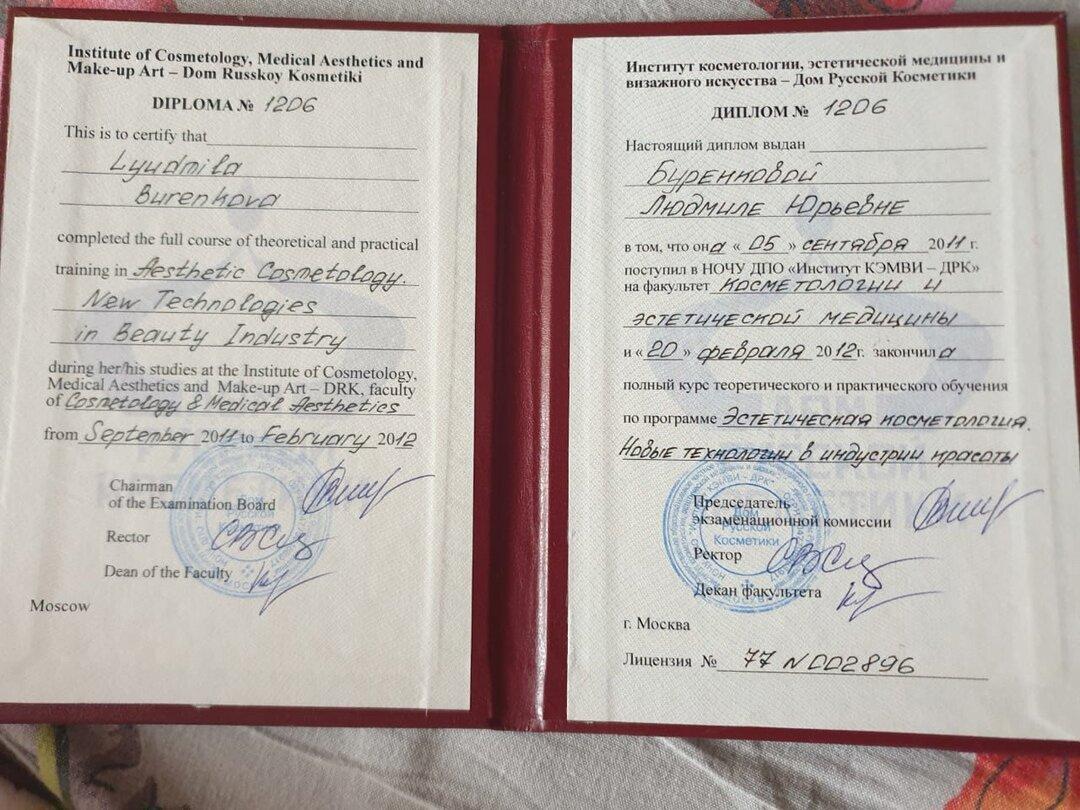 Institute of Cosmetology, Medical Aesthetics and
Make-up Art – Dom Russkoy Kosmetiki
DIPLOMA № 1206
This is to certify that
Lyudmila
Burenkova
completed the full course of theoretical and practical
training in Aesthetic Cosmetology.
New Technologies
in Beauty Industry
during her/his studies at the Institute of Cosmetology,
Medical Aesthetics and Make-up Art – DRK, faculty
of Cosmetology & Medical Aesthetics
from September 2011 to February 2012
Chairman
of the Examination Board
Rector
Dean of the Faculty
Moscow
Дом
Русской
Косметики
Институт косметологии, эстетической медицины и
визажного искусства – Дом Русской Косметики
ДИПЛОМ № 1206
Настоящий диплом выдан
Буренковой
Людмиле Юрьевне
в том, что она « 05 » сентября 2011 г.
поступил в НОЧУ ДПО «Институт КЭМВИ – ДРК»
на факультет Косметологии и
эстетической медицины
и « 20 » февраля 2012г. закончила
полный курс теоретического и практического обучения
по программе Эстетическая косметология.
Новые технологии в индустрии красоты
Председатель
экзаменационной комиссии
Ректор
Декан факультета
Дом
Русской
Косметики
г. Москва
Лицензия № 77 N002896